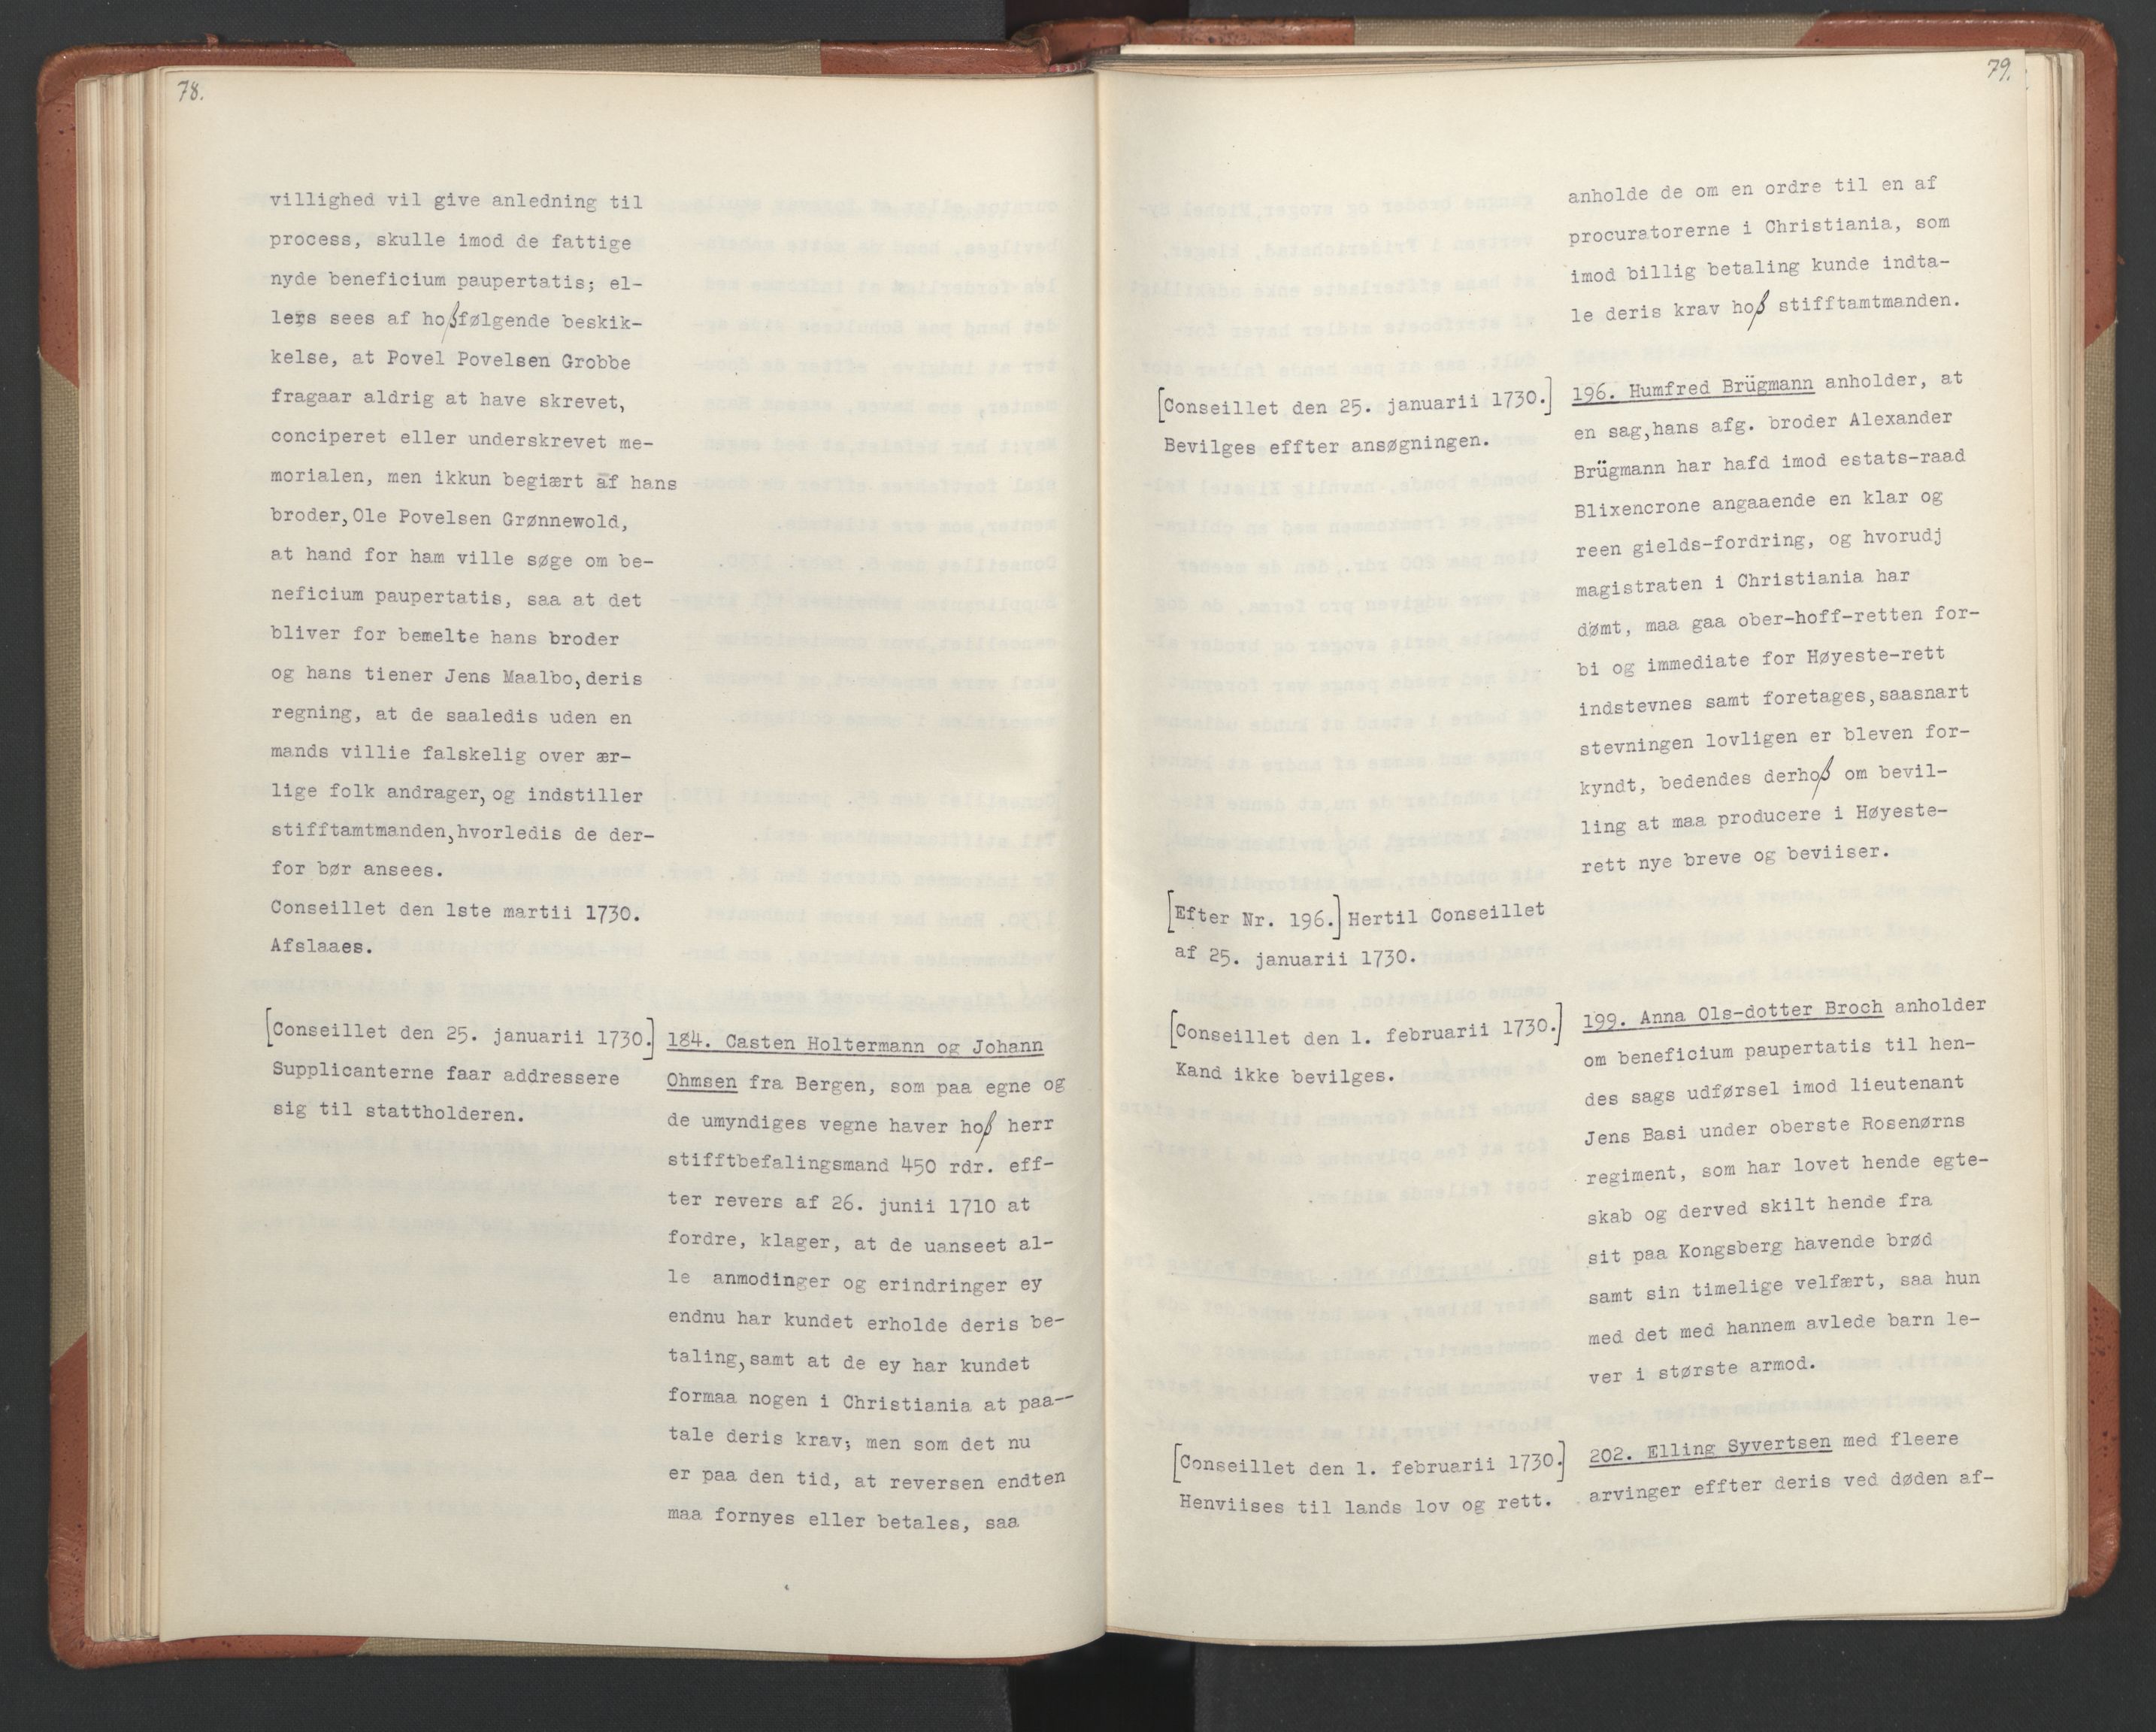 78.
villighed vil give anledning til
process, skulle imod de fattige
nyde beneficium paupertatis; el-
lers sees af hoßfølgende beskik-
kelse, at Povel Povelsen Grobbe
fragaar aldrig at have skrevet,
conciperet eller underskrevet me-
morialen, men ikkun begiært af hans
broder, Ole Povelsen Grønnewold,
at hand for ham ville søge om be-
neficium paupertatis, saa at det
bliver for bemelte hans broder
og hans tiener Jens Maalbo, deris
regning, at de saaledis uden en
mands villie falskelig over ær-
lige folk andrager, og indstiller
stifftamtmanden, hvorledis de der-
for bør ansees.
Conseillet den 1ste martii 1730.
Afslaaes.
[Conseillet den 25. januarii 1730.]
Supplicanterne faar addressere
sig til stattholderen.
184. Casten Holtermann og Johann
Ohmsen fra Bergen, som paa egne og
de umyndiges vegne haver hoß herr
stifftbefalingsmand 450 rdr. eff-
ter revers af 26. junii 1710 at
fordre, klager, at de uanseet al-
le anmodinger og erindringer ey
endnu har kundet erholde deris be-
taling, samt at de ey har kundet
formaa nogen i Christiania at paa-
tale deris krav; men som det nu
er paa den tid, at reversen endten
maa fornyes eller betales, saa
79.
anholde de om en ordre til en af
procuratorerne i Christiania, som
imod billig betaling kunde indta-
le deris krav hoß stifftamtmanden.
[Conseillet den 25. januarii 1730.]
Bevilges effter ansøgningen.
196. Humfred Brügmann anholder, at
en sag, hans afg. broder Alexander
Brügmann har hafd imod estats-raad
Blixencrone angaaende en klar og
reen gields-fordring, og hvorudj
magistraten i Christiania har
dømt, maa gaa ober-hoff-retten for-
bi og immediate for Høyeste-rett
indstevnes samt foretages, saasnart
stevningen lovligen er bleven for-
kyndt, bedendes derhoß om bevil-
ling at maa producere i Høyeste-
rett nye breve og beviiser.
[Efter Nr. 196.] Hertil Conseillet
af 25. januarii 1730.
[Conseillet den 1. februarii 1730.]
Kand ikke bevilges.
199. Anna Ols-dotter Broch anholder
om beneficium paupertatis til hen-
des sags udførsel imod lieutenant
Jens Basi under oberste Rosenørns
regiment, som har lovet hende egte-
skab og derved skilt hende fra
sit paa Kongsberg havende brød
samt sin timelige velfært, saa hun
med det med hannem avlede barn le-
ver i største armod.
[Conseillet den 1. februarii 1730.]
Henviises til lands lov og rett.
202. Elling Syvertsen med fleere
arvinger effter deris ved døden af-